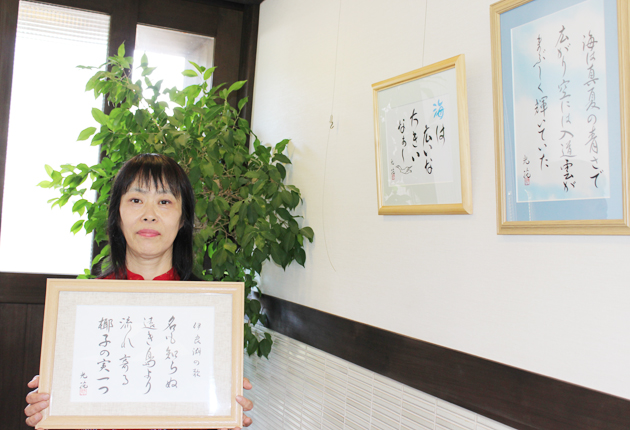 海は真夏の青さで
広がり空には入道雲が
まぶしく輝いていた
光
海は
広いな
大きい
なぁし
伊良湖の歌
名も知らぬ
遠き島より
流れ寄る
椰子の実一つ
光